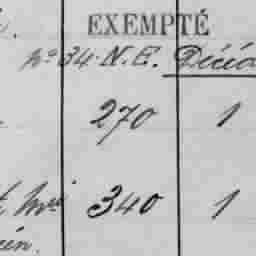 EXEMPTÉ
nº 34 N.E. Décia
270 1
340 1